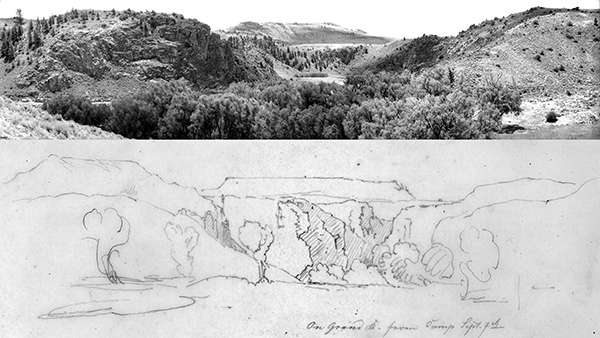 On Grand R. from Camp Sept. 7th